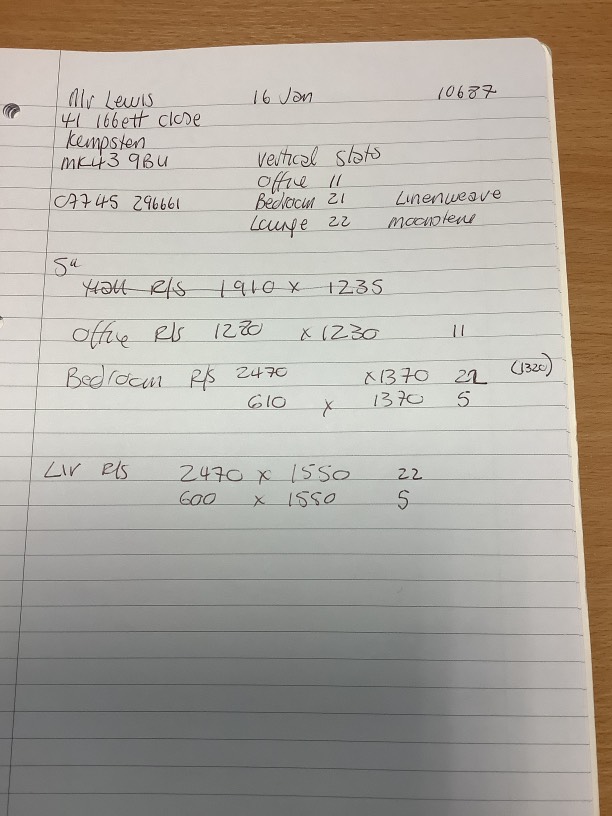 Mr Lewis 16 Jan 10687
41 Ibbett Close
Kempsten
MK43 9BU Vertical Slats
Office 11
07745 296661 Bedroom 21 Linenweave
Lounge 22
5"
Hall R/S 1910 x 1235
Office R/S 1220 x 1230 11
Bedroom R/S 2470 x 1370 22 (1320)
610 x 1370 5
Liv R/S 2470 x 1550 22
600 x 1550 5